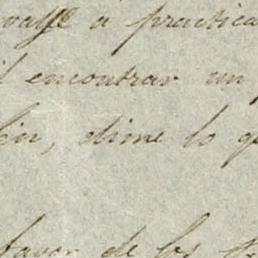 vaya a practica
il encontrar un
fin, dime lo q
favor de los